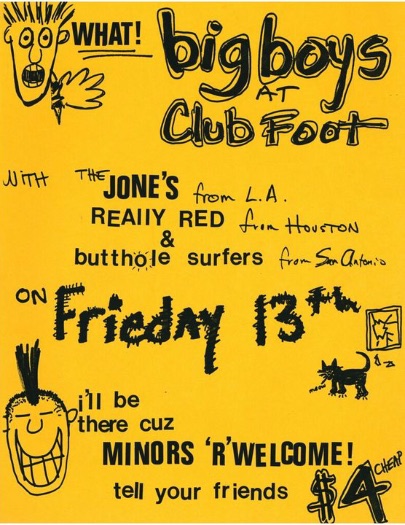 WHAT!
big boys
AT
Club Foot
WITH THE JONE'S from L.A.
REAllY RED from HOUSTON
&
butthole surfers from San Antonio
ON Frieday 13th
meow
i'll be
there cuz
MINORS 'R' WELCOME!
tell your friends
$4 CHEAP